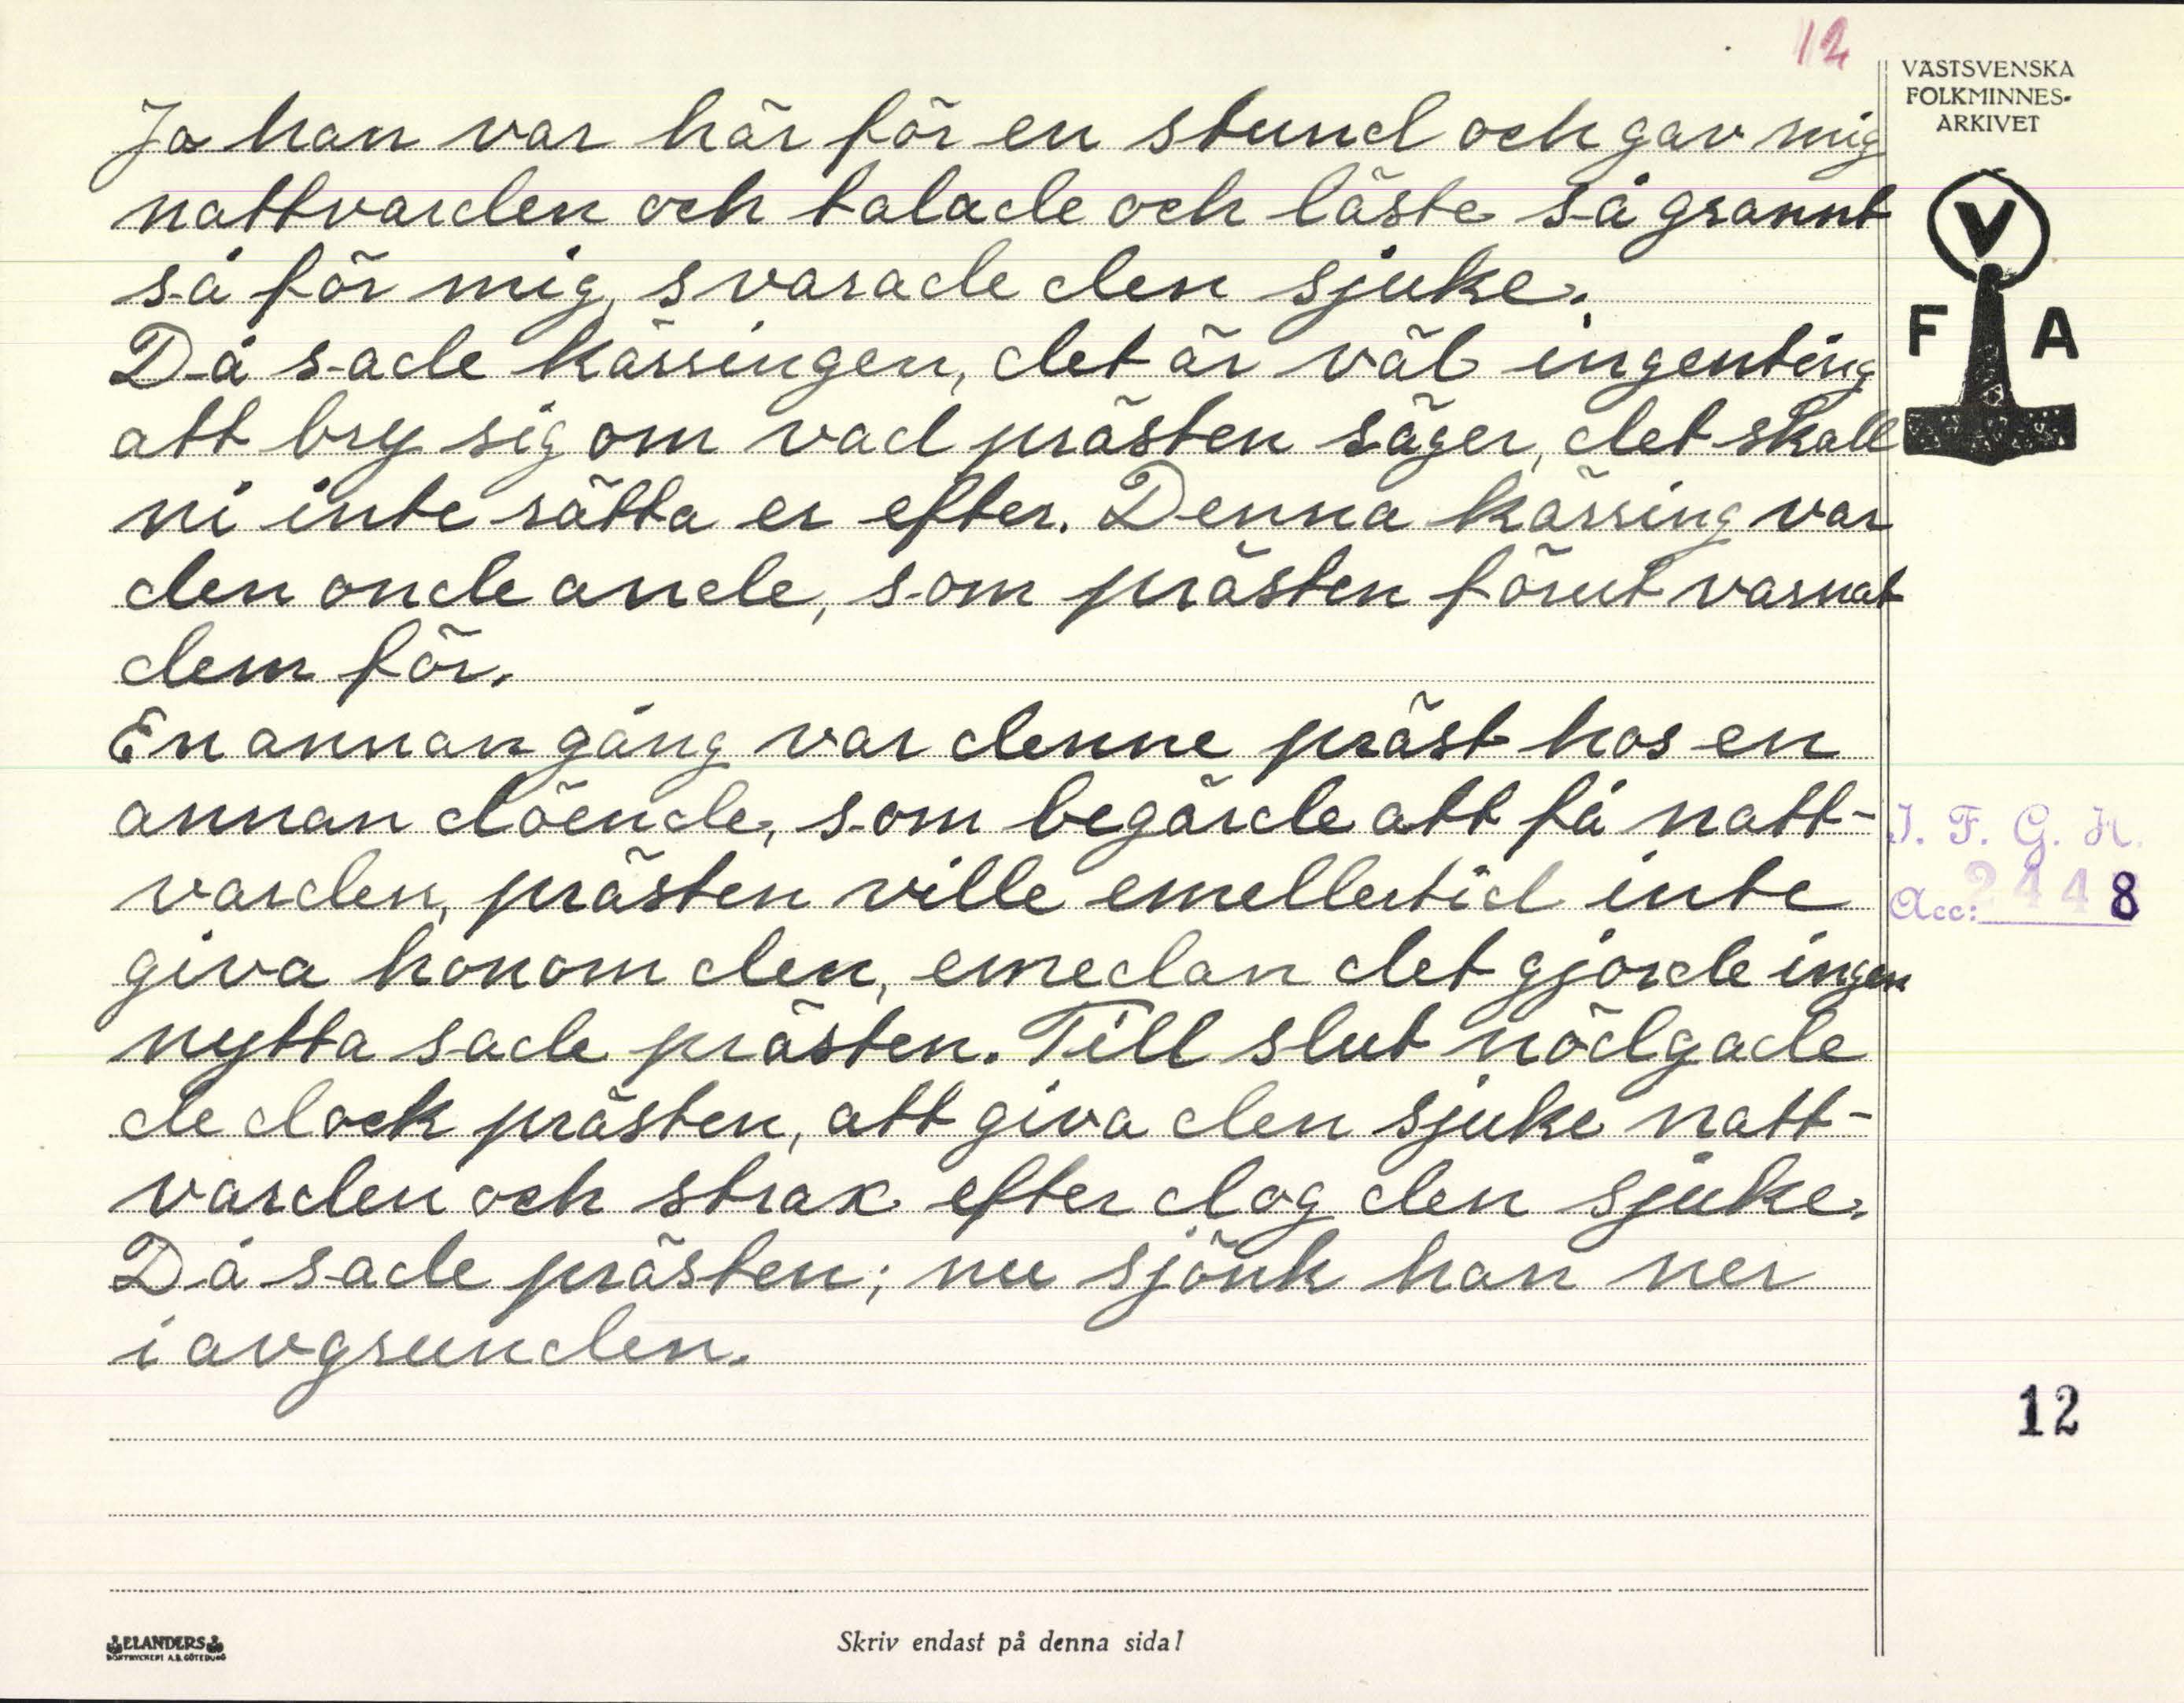 12
VÄSTSVENSKA
FOLKMINNES-
ARKIVET
V
F A
Ja han var här för en stund och gav mig
nattvarden och talade och läste så grannt
så för mig, svarade den sjuke.
Då sade kärringen, det är väl ingenting
att bry sig om vad prästen säger, det skall
ni inte rätta er efter. Denna kärring var
den onde ande, som prästen förut varnat
dem för.
En annan gång var denne präst hos en
annan döende, som begärde att få natt-
varden, prästen ville emellertid inte
giva honom den, emedan det gjorde ingen
nytta sade prästen. Till slut nödgade
de dock prästen, att giva den sjuke natt-
varden och strax efter dog den sjuke.
Då sade prästen; nu sjönk han ner
i avgrunden.
I. F. G. H.
Acc: 2448
12
ELANDERS
BOKTRYCKERI A.B. GÖTEBORG
Skriv endast på denna sida!